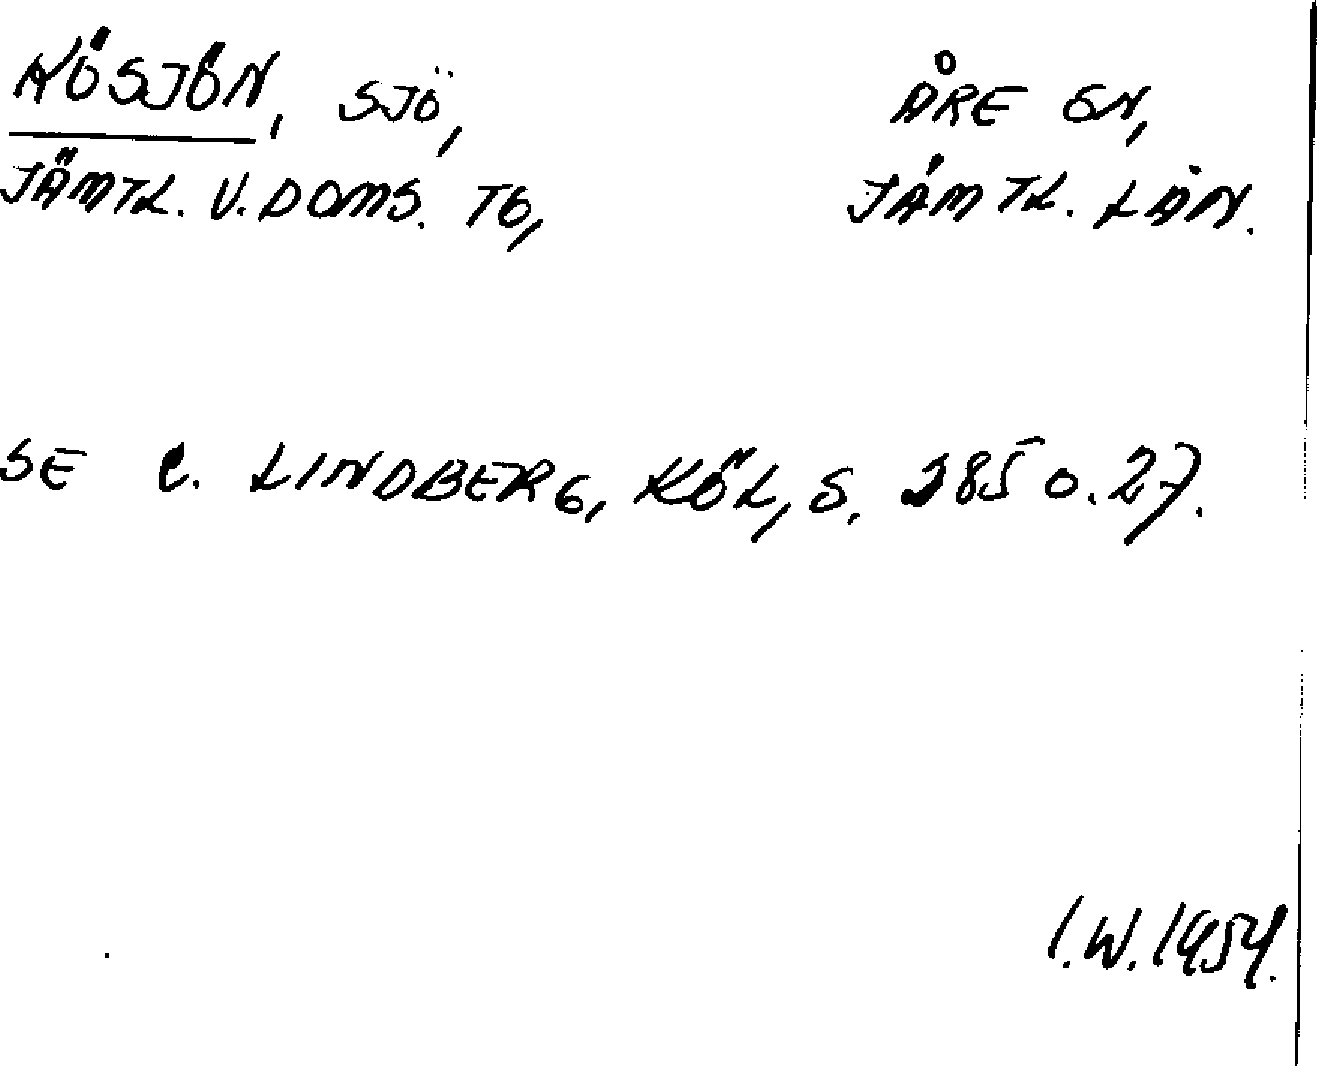 KÖSJÖN, SJÖ, ÅRE SN,
JÄMTL. V. DOMS. TG, JÄMTL. LÄN.
SE C. LINDBERG, KÖL, S. 285 O. 27.
I.W. 1954.